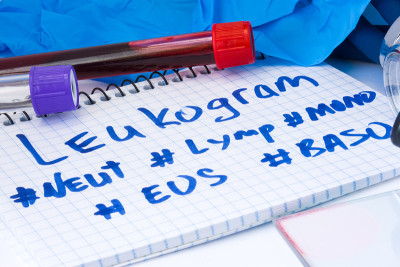 Leukogram
#Neut #Lymp #MONO
#EOS #BASO